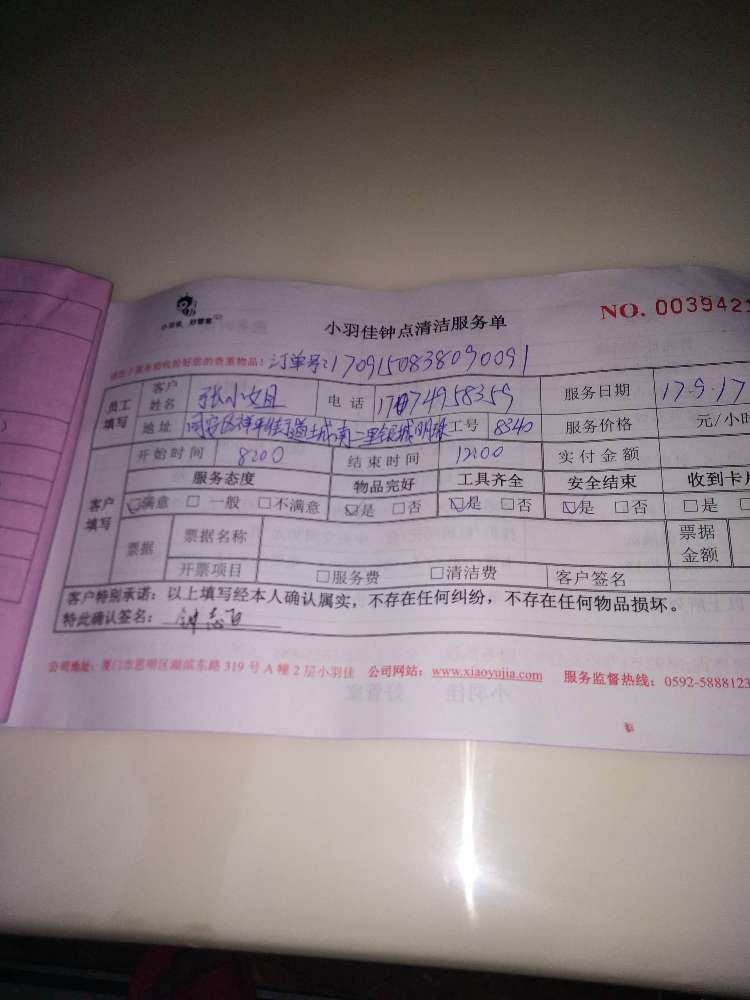 小羽佳 好管家
小羽佳钟点清洁服务单
NO. 0039421
请您小服务前收捡好您的贵重物品：订单号:1709150838090091
员工填写 客户姓名 张小姐 电话 17074958359 服务日期 17.9.17
地址 同安区祥平街道城南二里银城明珠 工号 8340 服务价格 元/小时
开始时间 8:00 结束时间 12:00 实付金额
客户填写 服务态度 物品完好 工具齐全 安全结束 收到卡
☑满意 □一般 □不满意 ☑是 □否 ☑是 □否 ☑是 □否 □是 □
票据 票据名称 票据金额
开票项目 □服务费 □清洁费 客户签名
客户特别承诺：以上填写经本人确认属实，不存在任何纠纷，不存在任何物品损坏。
特此确认签名：钟志
公司地址：厦门市思明区湖滨东路 319 号 A 幢 2 层小羽佳 公司网站：www.xiaoyujia.com 服务监督热线：0592-5888123